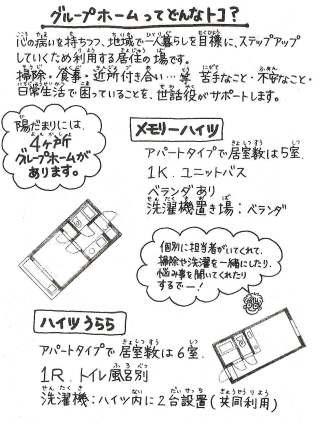 グループホームってどんなトコ？
心の病いを持ちつつ、地域で一人暮らしを目標に、ステップアップ
していくため利用する居住の場です。
掃除・食事・近所付き合い…等 苦手なこと・不安なこと・
日常生活で困っていることを、世話役がサポートします。
陽だまりには、
4ヶ所
グループホームが
あります。
メモリーハイツ
アパートタイプで居室数は5室.
1K. ユニットバス
ベランダあり
洗濯機置き場：ベランダ
個別に担当者がいてくれて、
掃除や洗濯を一緒にしたり、
悩み事を聞いてくれたり
するでー！
ハイツうらら
アパートタイプで居室数は6室.
1R. トイレ風呂別
洗濯機：ハイツ内に2台設置(共同利用)